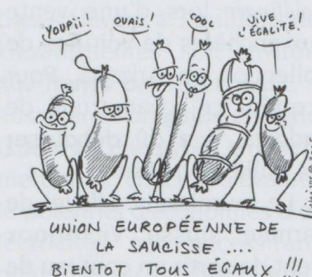 YOUPII!
OUAIS!
COOL
VIVE
L'ÉGALITÉ!
UNION EUROPÉENNE DE
LA SAUCISSE ....
BIENTOT TOUS ÉGAUX !!!